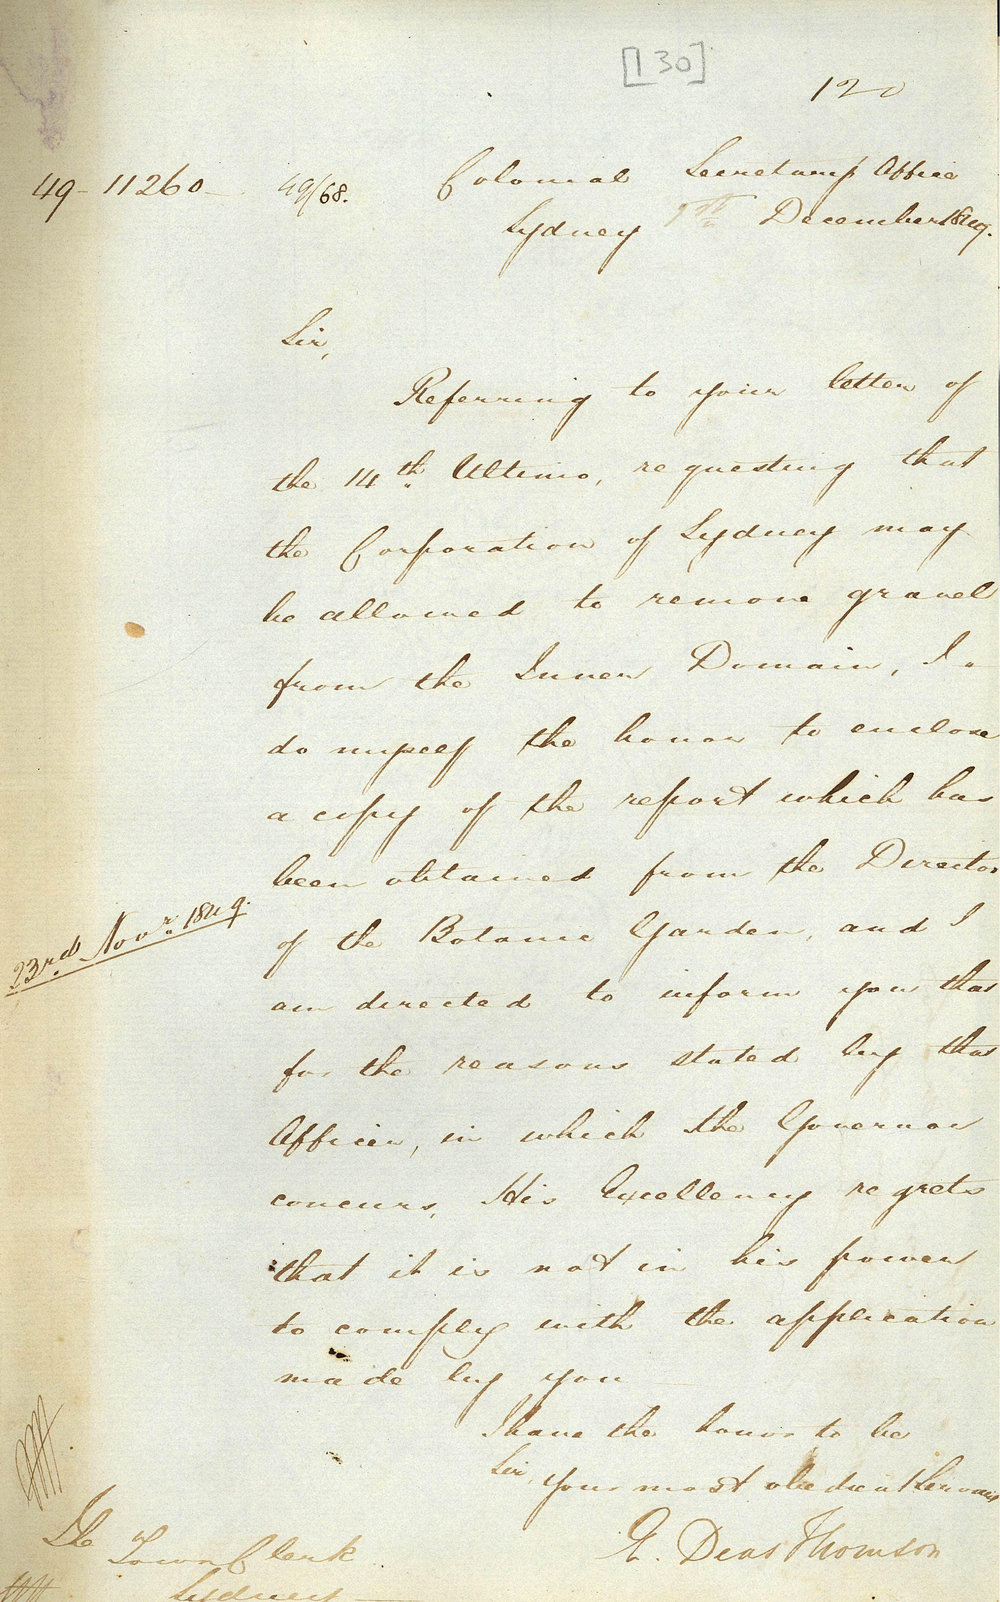 [130]
120
49-11260
49/68.
Colonial Secretarys Office
Sydney December 1849.
Sir,
Referring to your letter of
the 14th Ultimo, requesting that
the Corporation of Sydney may
be allowed to remove gravel
from the Inner Domain, I
do myself the honor to enclose
a copy of the report which has
been obtained from the Director
23rd Novr. 1849.
of the Botanic Garden, and I
am directed to inform you that
for the reasons stated by that
Officer, in which the Governor
concurs, His Excellency regrets
that it is not in his power
to comply with the application
made by you
I have the honor to be
Sir,
Your most obedient Servant
E. Deas Thomson
The Town Clerk
Sydney